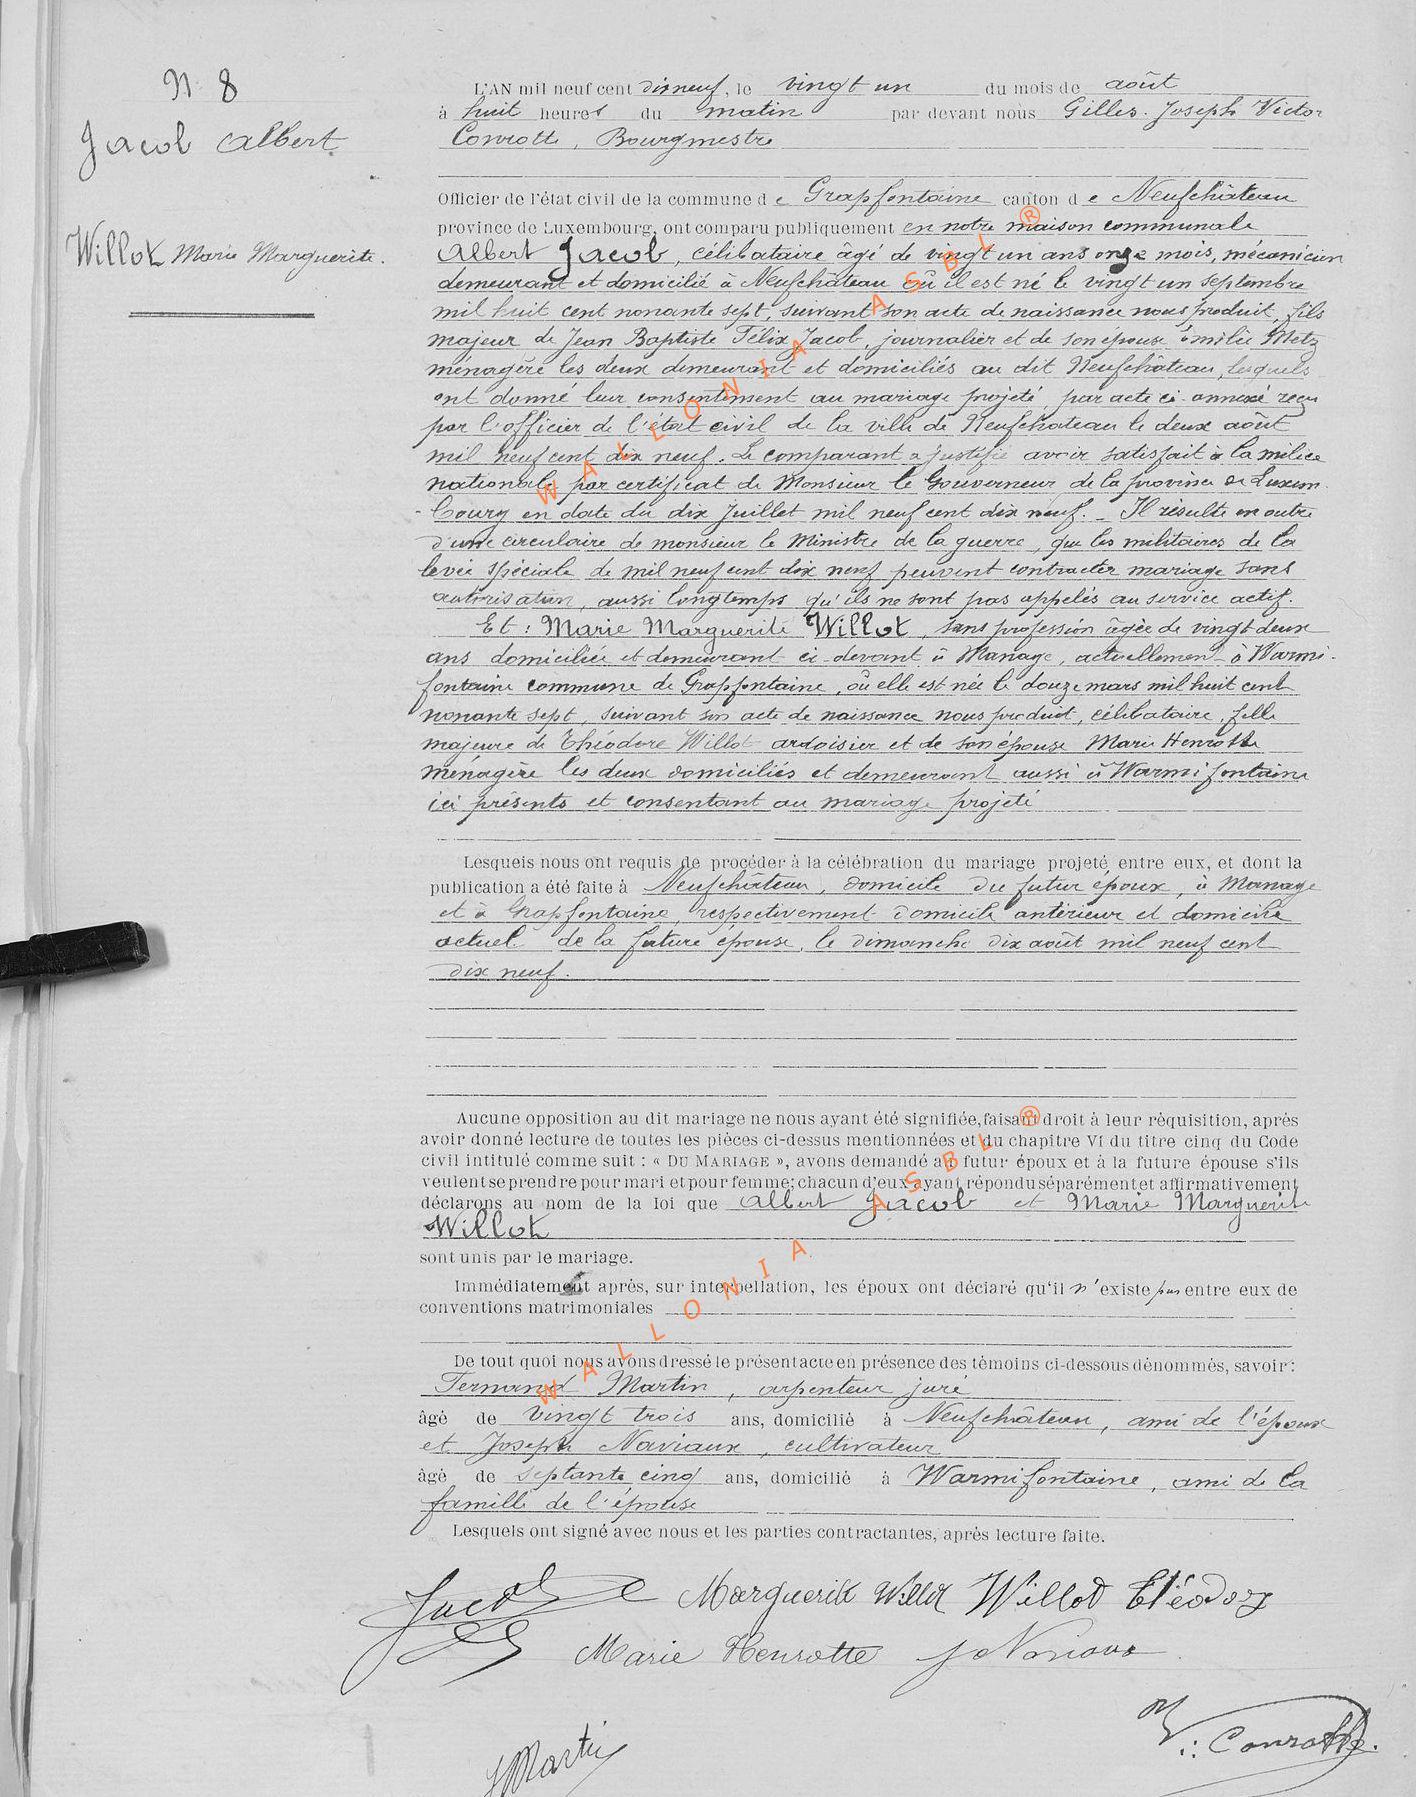 N 8
Jacob Albert
Willot Marie Marguerite.
L'AN mil neuf cent dixneuf, le vingt un du mois de août
à huit heures du matin par devant nous Gilles-Joseph Victor
Conrotte, Bourgmestre
Officier de l'état civil de la commune de Grapfontaine canton de Neufchâteau
province de Luxembourg, ont comparu publiquement en notre maison communale
Albert Jacob, célibataire âgé de vingt un ans onze mois, mécanicien
demeurant et domicilié à Neufchâteau où il est né le vingt un septembre
mil huit cent nonante sept, suivant son acte de naissance nous produit, fils
majeur de Jean Baptiste Félix Jacob, journalier et de son épouse émilie Metz
ménagère les deux demeurant et domiciliés au dit Neufchâteau, lesquels
ont donné leur consentement au mariage projeté par acte ci-annexé reçu
par l'officier de l'état civil de la ville de Neufchateau le deux août
mil neuf cent dix neuf. Le comparant a justifié avoir satisfait à la milice
nationale par certificat de Monsieur le Gouverneur de la province de Luxem
-bourg en date du dix Juillet mil neuf cent dix neuf. - Il résulte en outre
d'une circulaire de monsieur le Ministre de la guerre, que les militaires de la
levée spéciale de mil neuf cent dix neuf peuvent contracter mariage sans
autorisation, aussi longtemps qu'ils ne sont pas appelés au service actif.
Et : Marie Marguerite Willot, sans profession âgée de vingt deux
ans domiciliée et demeurant ci-devant à Manage, actuellement à Warmi-
fontaine commune de Grapfontaine, où elle est née le douze mars mil huit cent
nonante sept, suivant son acte de naissance nous produit, célibataire, fille
majeure de Théodore Willot ardoisier et de son épouse Marie Henrotte
ménagère les deux domiciliés et demeurant aussi à Warmifontaine
ici présents et consentant au mariage projeté
Lesquels nous ont requis de procéder à la célébration du mariage projeté entre eux, et dont la
publication a été faite à Neufchâteau, domicile du futur époux, à Manage
et à Grapfontaine, respectivement domicile antérieur et domicile
actuel de la future épouse, le dimanche dix août mil neuf cent
dix neuf.
Aucune opposition au dit mariage ne nous ayant été signifiée, faisant droit à leur réquisition, après
avoir donné lecture de toutes les pièces ci-dessus mentionnées et du chapitre VI du titre cinq du Code
civil intitulé comme suit : « DU MARIAGE », avons demandé au futur époux et à la future épouse s'ils
veulent se prendre pour mari et pour femme; chacun d'eux ayant répondu séparément et affirmativement
déclarons au nom de la loi que Albert Jacob et Marie Marguerite
Willot
sont unis par le mariage.
Immédiatement après, sur interpellation, les époux ont déclaré qu'il n'existe pas entre eux de
conventions matrimoniales
De tout quoi nous avons dressé le présent acte en présence des témoins ci-dessous dénommés, savoir:
Fernand Martin, arpenteur juré
âgé de vingt trois ans, domicilié à Neufchâteau, ami de l'époux
et Joseph Naviaux, cultivateur
âgé de septante cinq ans, domicilié à Warmifontaine, ami de la
famille de l'épouse
Lesquels ont signé avec nous et les parties contractantes, après lecture faite.
Jacob Marguerite Willot Willot Théodore
Marie Henrotte J Naviaux
V. Conrotte.
F Martin
WALLONIA ASBL ®
WALLONIA ASBL ®